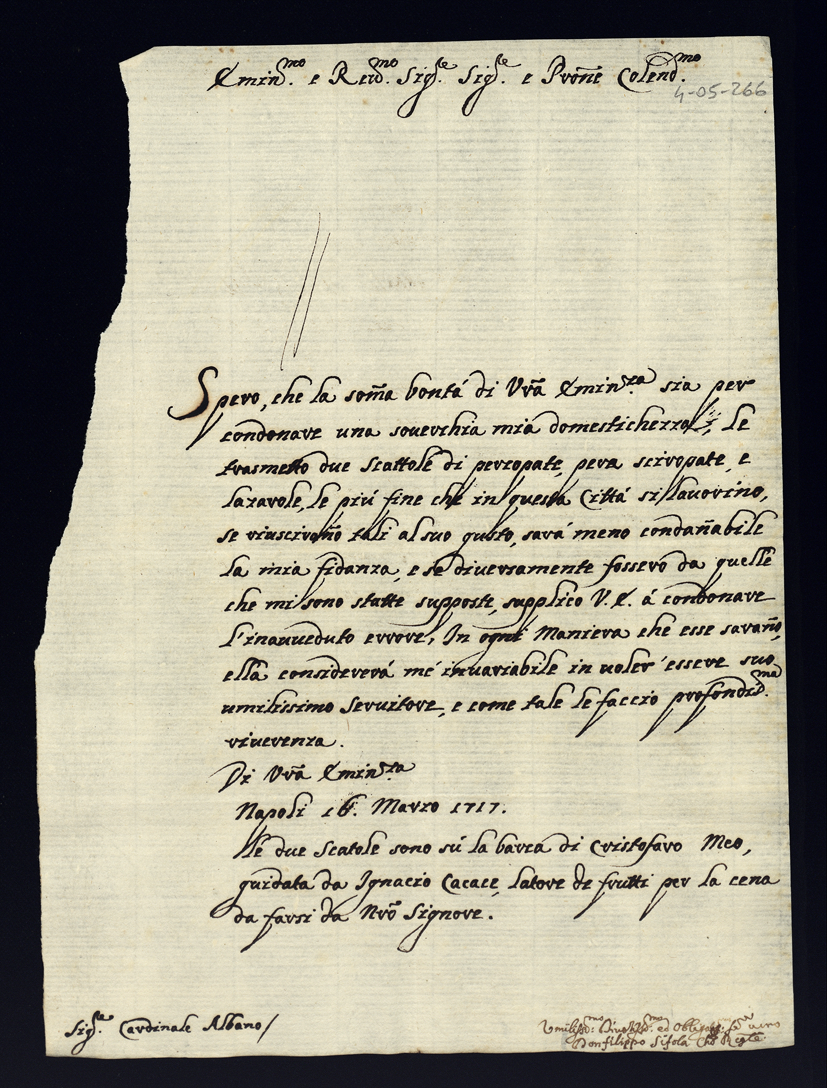 Emin.mo e Rev.mo Sig.re Sig.re e Prõne Colend.mo
4-05-266
Spero, che la som̃a bontá di Vrã Emin.za sia per
condonare una souerchia mia domestichezza; Le
trasmetto due Scattole di percopate, pera sciropate, e
Lazarole, le piú fine che in questa Cittá si lauorino,
se riusciran̄o tali al suo gusto, sará meno condan̄abile
la mia fidanza, e se diuersamente fossero da quelle
che mi sono statte supposte, supplico V. E. á condonare
l'inaueduto errore; In ogni maniera che esse saran̄o,
ella considererá mé inuariabile in uoler' essere suo
umilissimo Seruitore, e come tale le faccio profondis.ma
riuerenza.
Di Vrã Emin.za
Napoli 16. Marzo 1717.
Le due Scatole sono sú la barca di Cristofaro Meo,
guidata da Ignacio Cacace, latore de frutti per la cena
da farsi da Nrõ Signore.
Sig.re Cardinale Albano/
Umiliss.mo Diuotiss.mo ed Obligatiss. ser.r uero
Don filippo Sifola